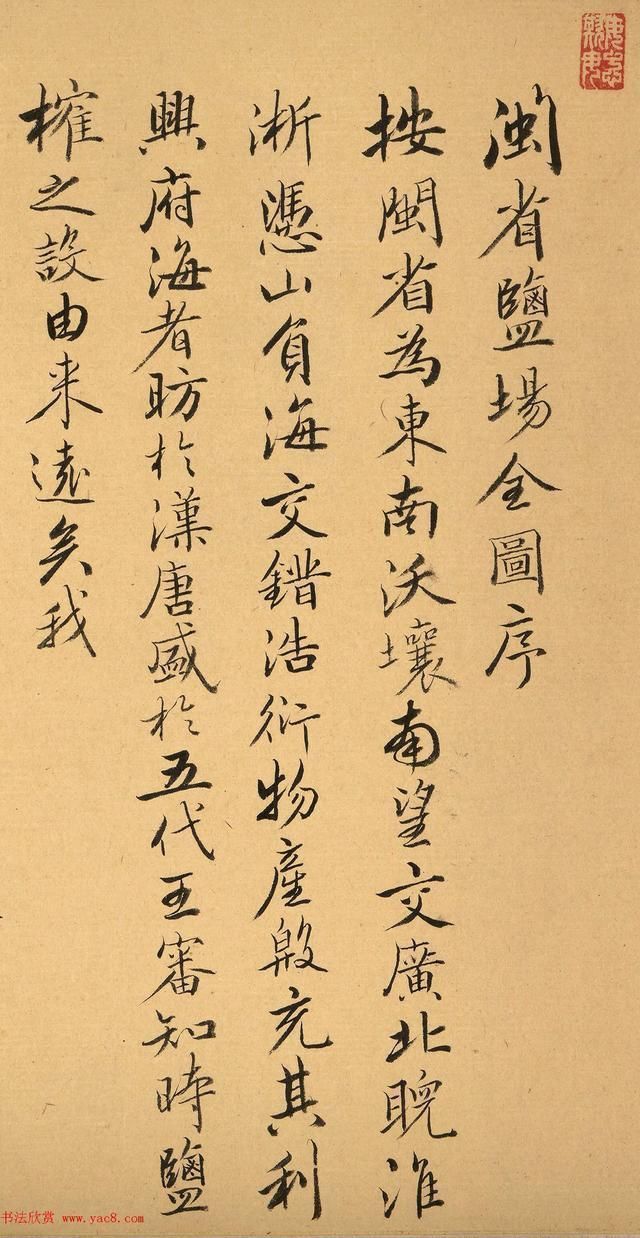 閩省鹽場全圖序
按閩省為東南沃壤南望交廣北睨淮
浙憑山負海交錯浩衍物產殷充其利
興府海者昉於漢唐盛於五代王審知時鹽
榷之設由来遠矣我
书法欣赏 www.yac8.com